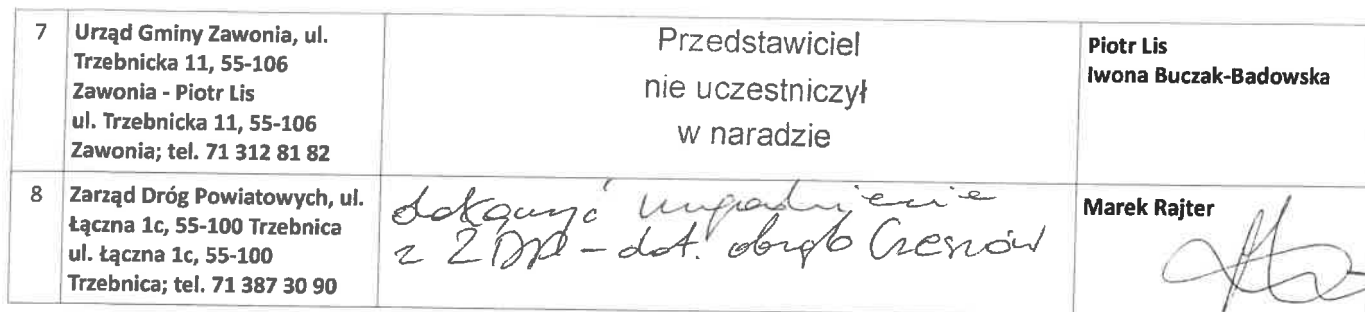 7
Urząd Gminy Zawonia, ul.
Trzebnicka 11, 55-106
Zawonia - Piotr Lis
ul. Trzebnicka 11, 55-106
Zawonia; tel. 71 312 81 82
Przedstawiciel
nie uczestniczył
w naradzie
Piotr Lis
Iwona Buczak-Badowska
8
Zarząd Dróg Powiatowych, ul.
Łączna 1c, 55-100 Trzebnica
ul. Łączna 1c, 55-100
Trzebnica; tel. 71 387 30 90
dołączyć uzgodnienie
z ZDP - dot. obręb Czeszów
Marek Rajter